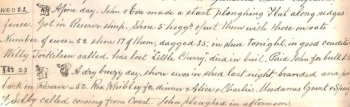 Wed 22 Fine day. John & Co made a start ploughing Flat along ridges
fence. Got in Reserve sheep. Shore 5 hoggets & put them with those on oats
Number of ewes 52 shore 17 of them, dagged 35, in shed tonight, in good condition
Willy called, has lost Little Cherry, died in bail. Paid John for
23 A dry breezy day shore ewes in shed last night branded and put
back in reserve = 52. for dinner & Charlie. Madames Grant & Gray
called coming from Coast. John ploughed in afternoon